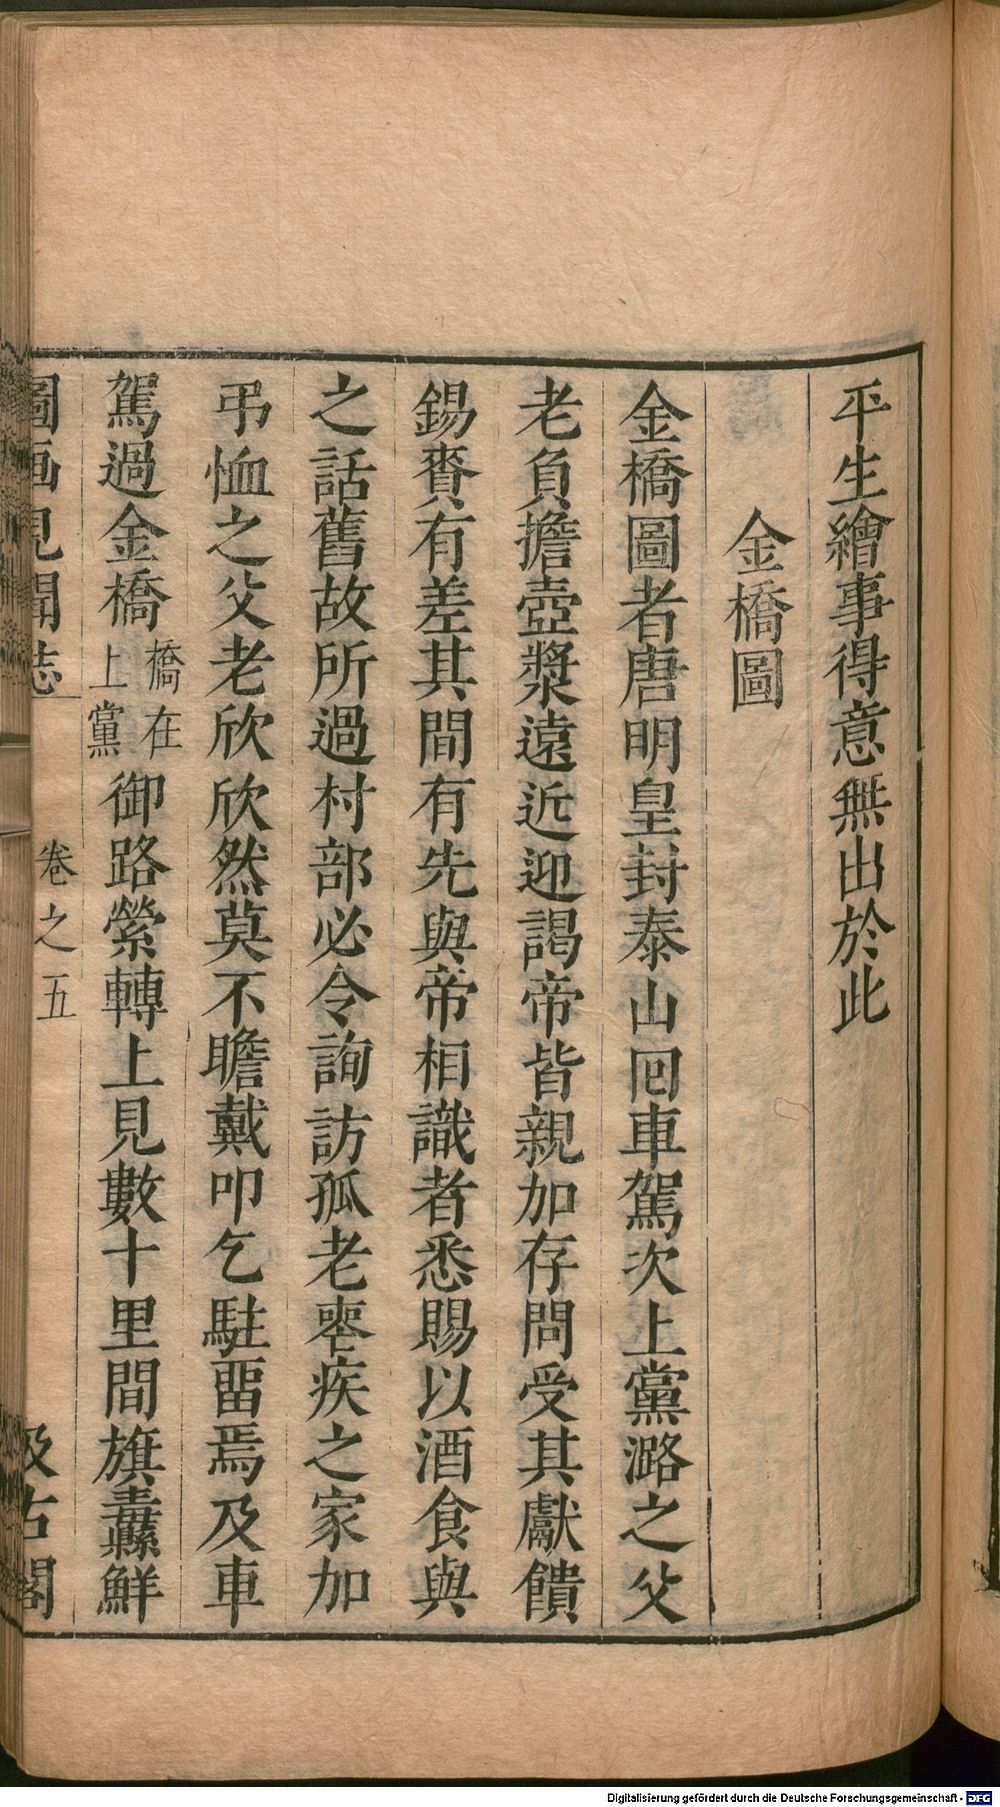 平生繪事得意無出於此
金橋圖
金橋圖者唐明皇封泰山囘車駕次上黨潞之父
老負擔壺漿遠近迎謁帝皆親加存問受其獻饋
錫賚有差其間有先與帝相識者悉賜以酒食與
之話舊故所過村部必令詢訪孤老喪疾之家加
弔恤之父老欣欣然莫不瞻戴叩乞駐畱焉及車
駕過金橋橋在上黨御路縈轉上見數十里間旗纛鮮
圖画見聞誌 卷之五 汲古閣
Digitalisierung gefördert durch die Deutsche Forschungsgemeinschaft - DFG